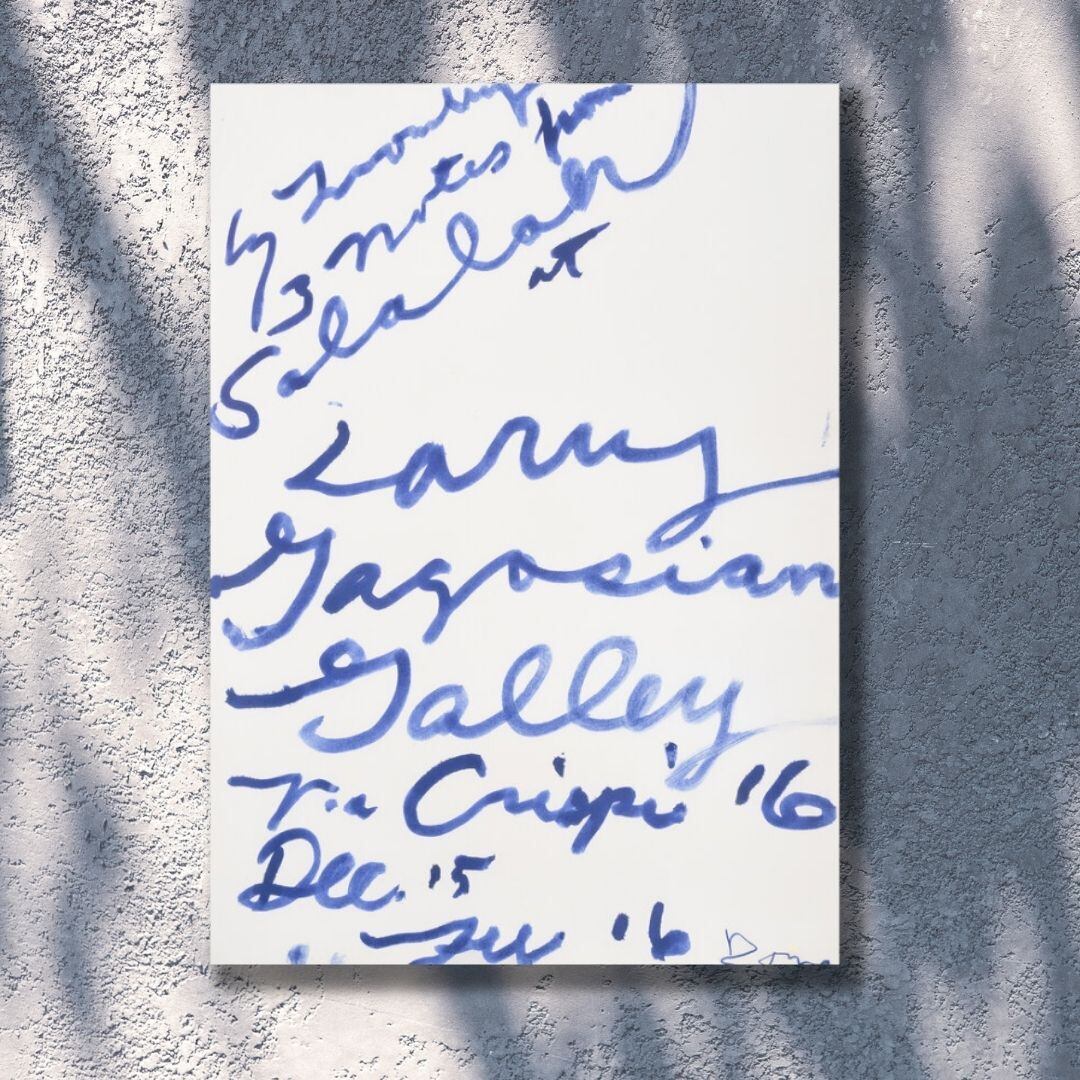 Twombly
3 Notes from
Salalah
at
Larry
Gagosian
Gallery
Via Crispi '16
Dec. '15
'16